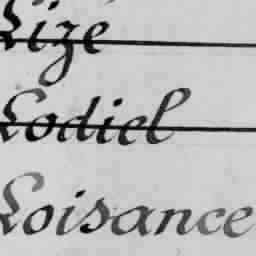 Lizé
Lodiel
Loisance